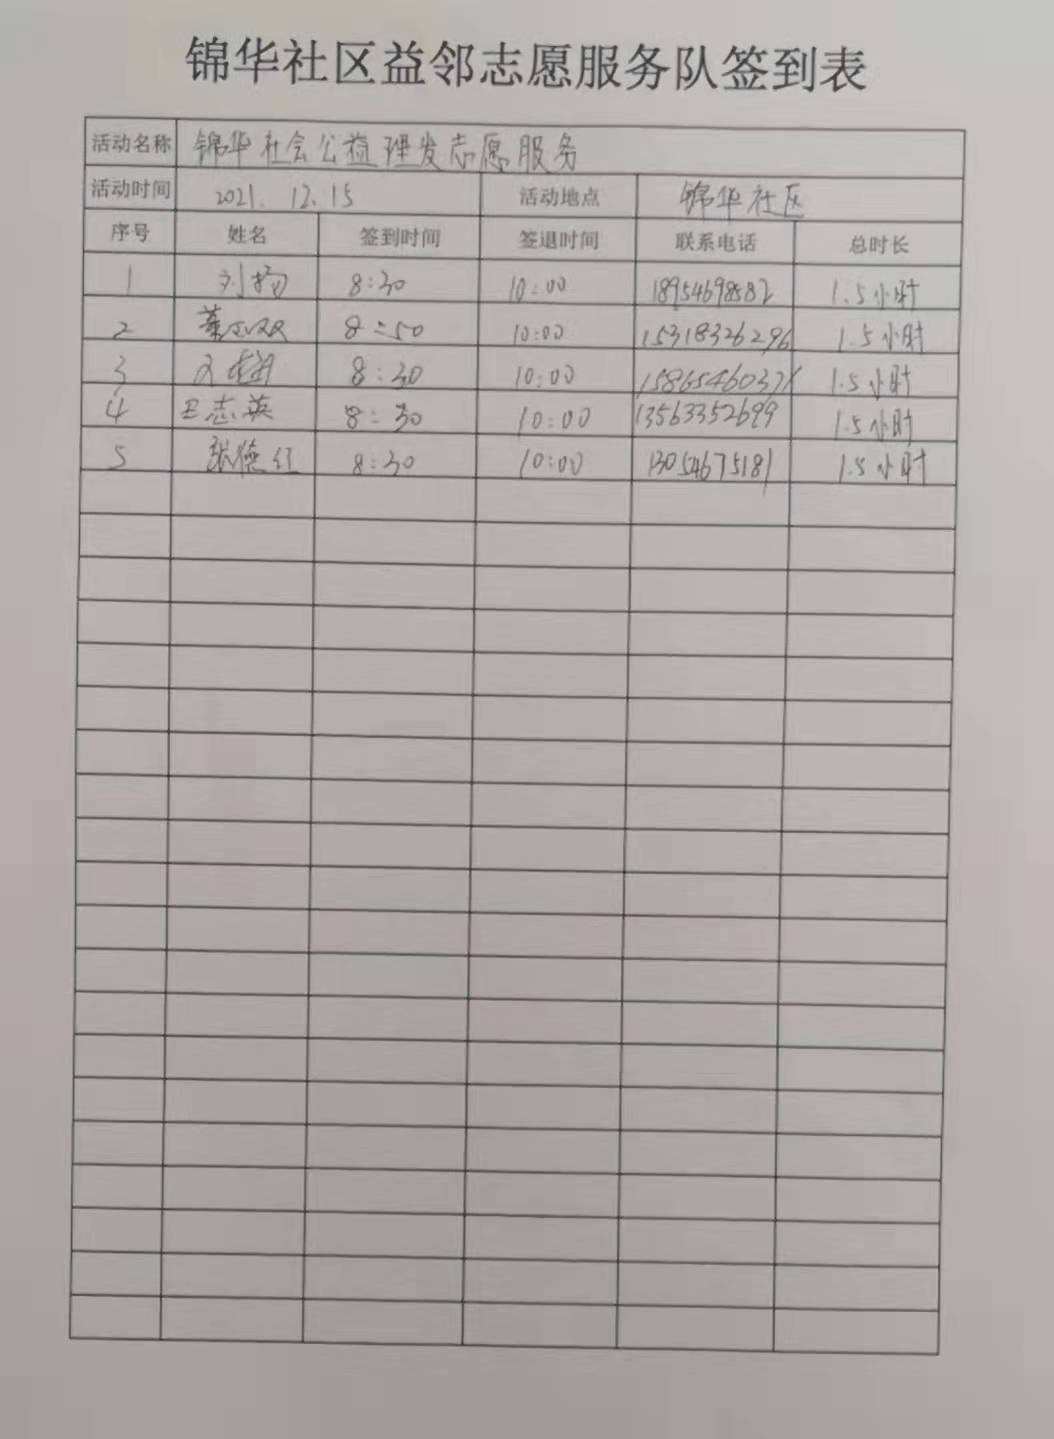 锦华社区益邻志愿服务队签到表
活动名称 锦华社会公益理发志愿服务
活动时间 2021.12.15 活动地点 锦华社区
序号 姓名 签到时间 签退时间 联系电话 总时长
1 刘扬 8:30 10:00 18954698582 1.5小时
2 8:50 10:00 15318326296 1.5小时
3 8:30 10:00 1.5小时
4 志英 8:30 10:00 13563352699 1.5小时
5 张德红 8:30 10:00 13054675181 1.5小时